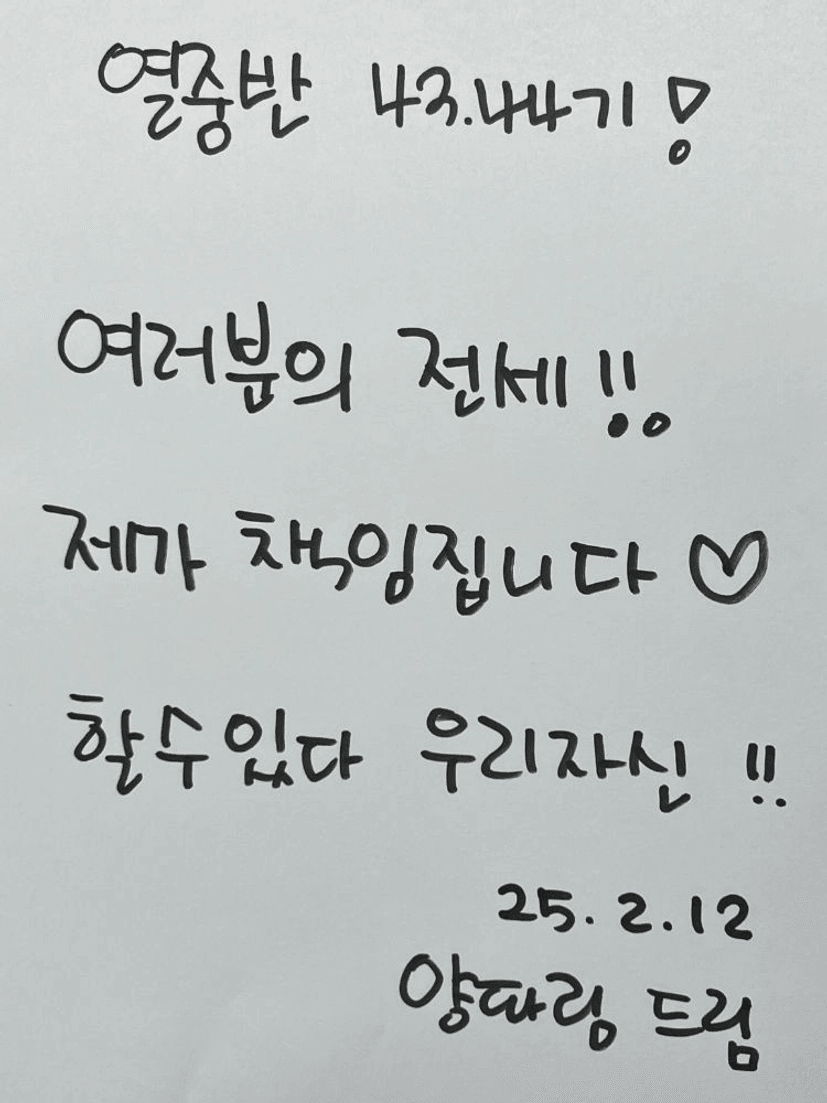 열중반 43.44기!
여러분의 전세!!
제가 책임집니다♡
할수있다 우리자신!!
25.2.12
양파링 드림